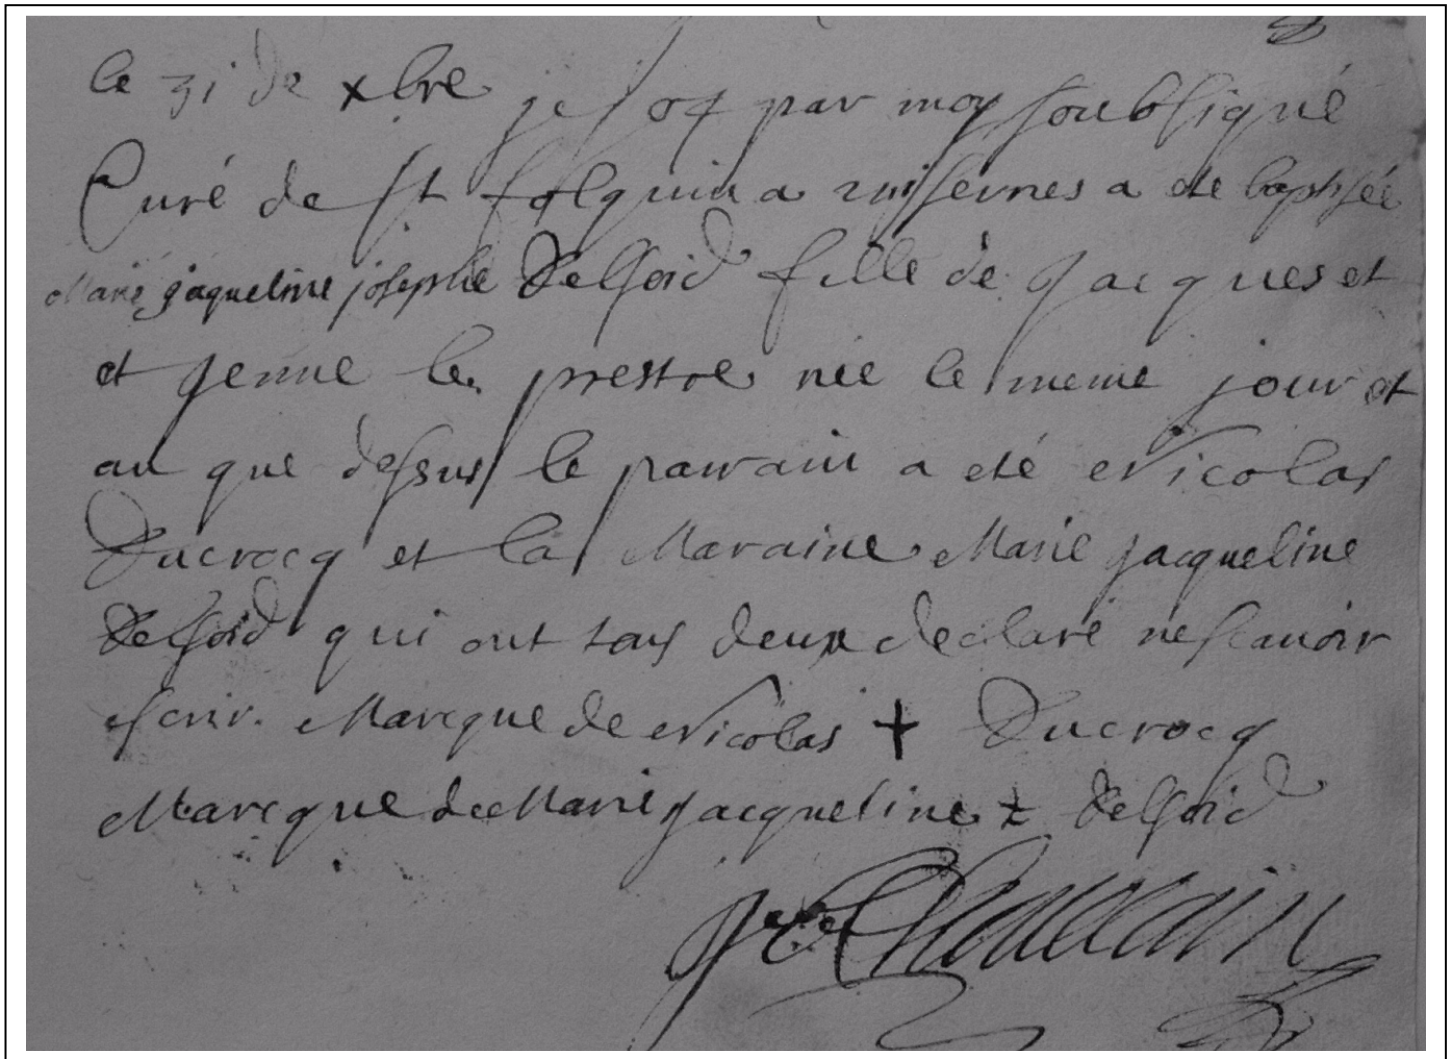 le 31 de xbre 1704 par moy soubsigné
Curé de st folquin a a eté baptisée
Marie jaqueline josephe Delsoid fille de Jacques et
et jenne le prestre née le meme jour et
an que dessus le parain a eté Nicolas
Ducrocq et la Maraine Marie jacqueline
Delsoid qui ont tous deux declaré ne scauoir
escrir. Marcque de Nicolas + Ducrocq
Marcque de Marie jacqueline + Delsoid